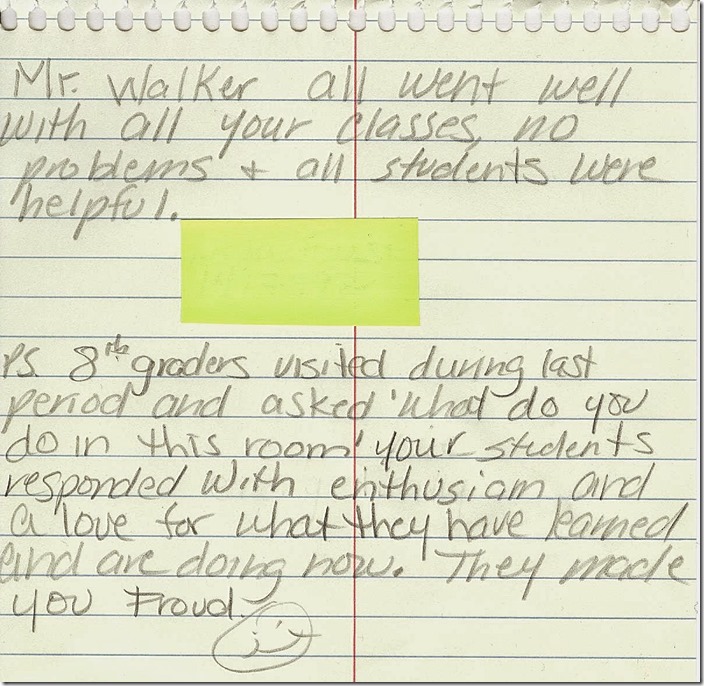 Mr. Walker all went well
with all your classes, no
problems + all students were
helpful.
PS 8th graders visited during last
period and asked 'what do you
do in this room' your students
responded with enthusiam and
a love for what they have learned
and are doing now. They made
you Proud.